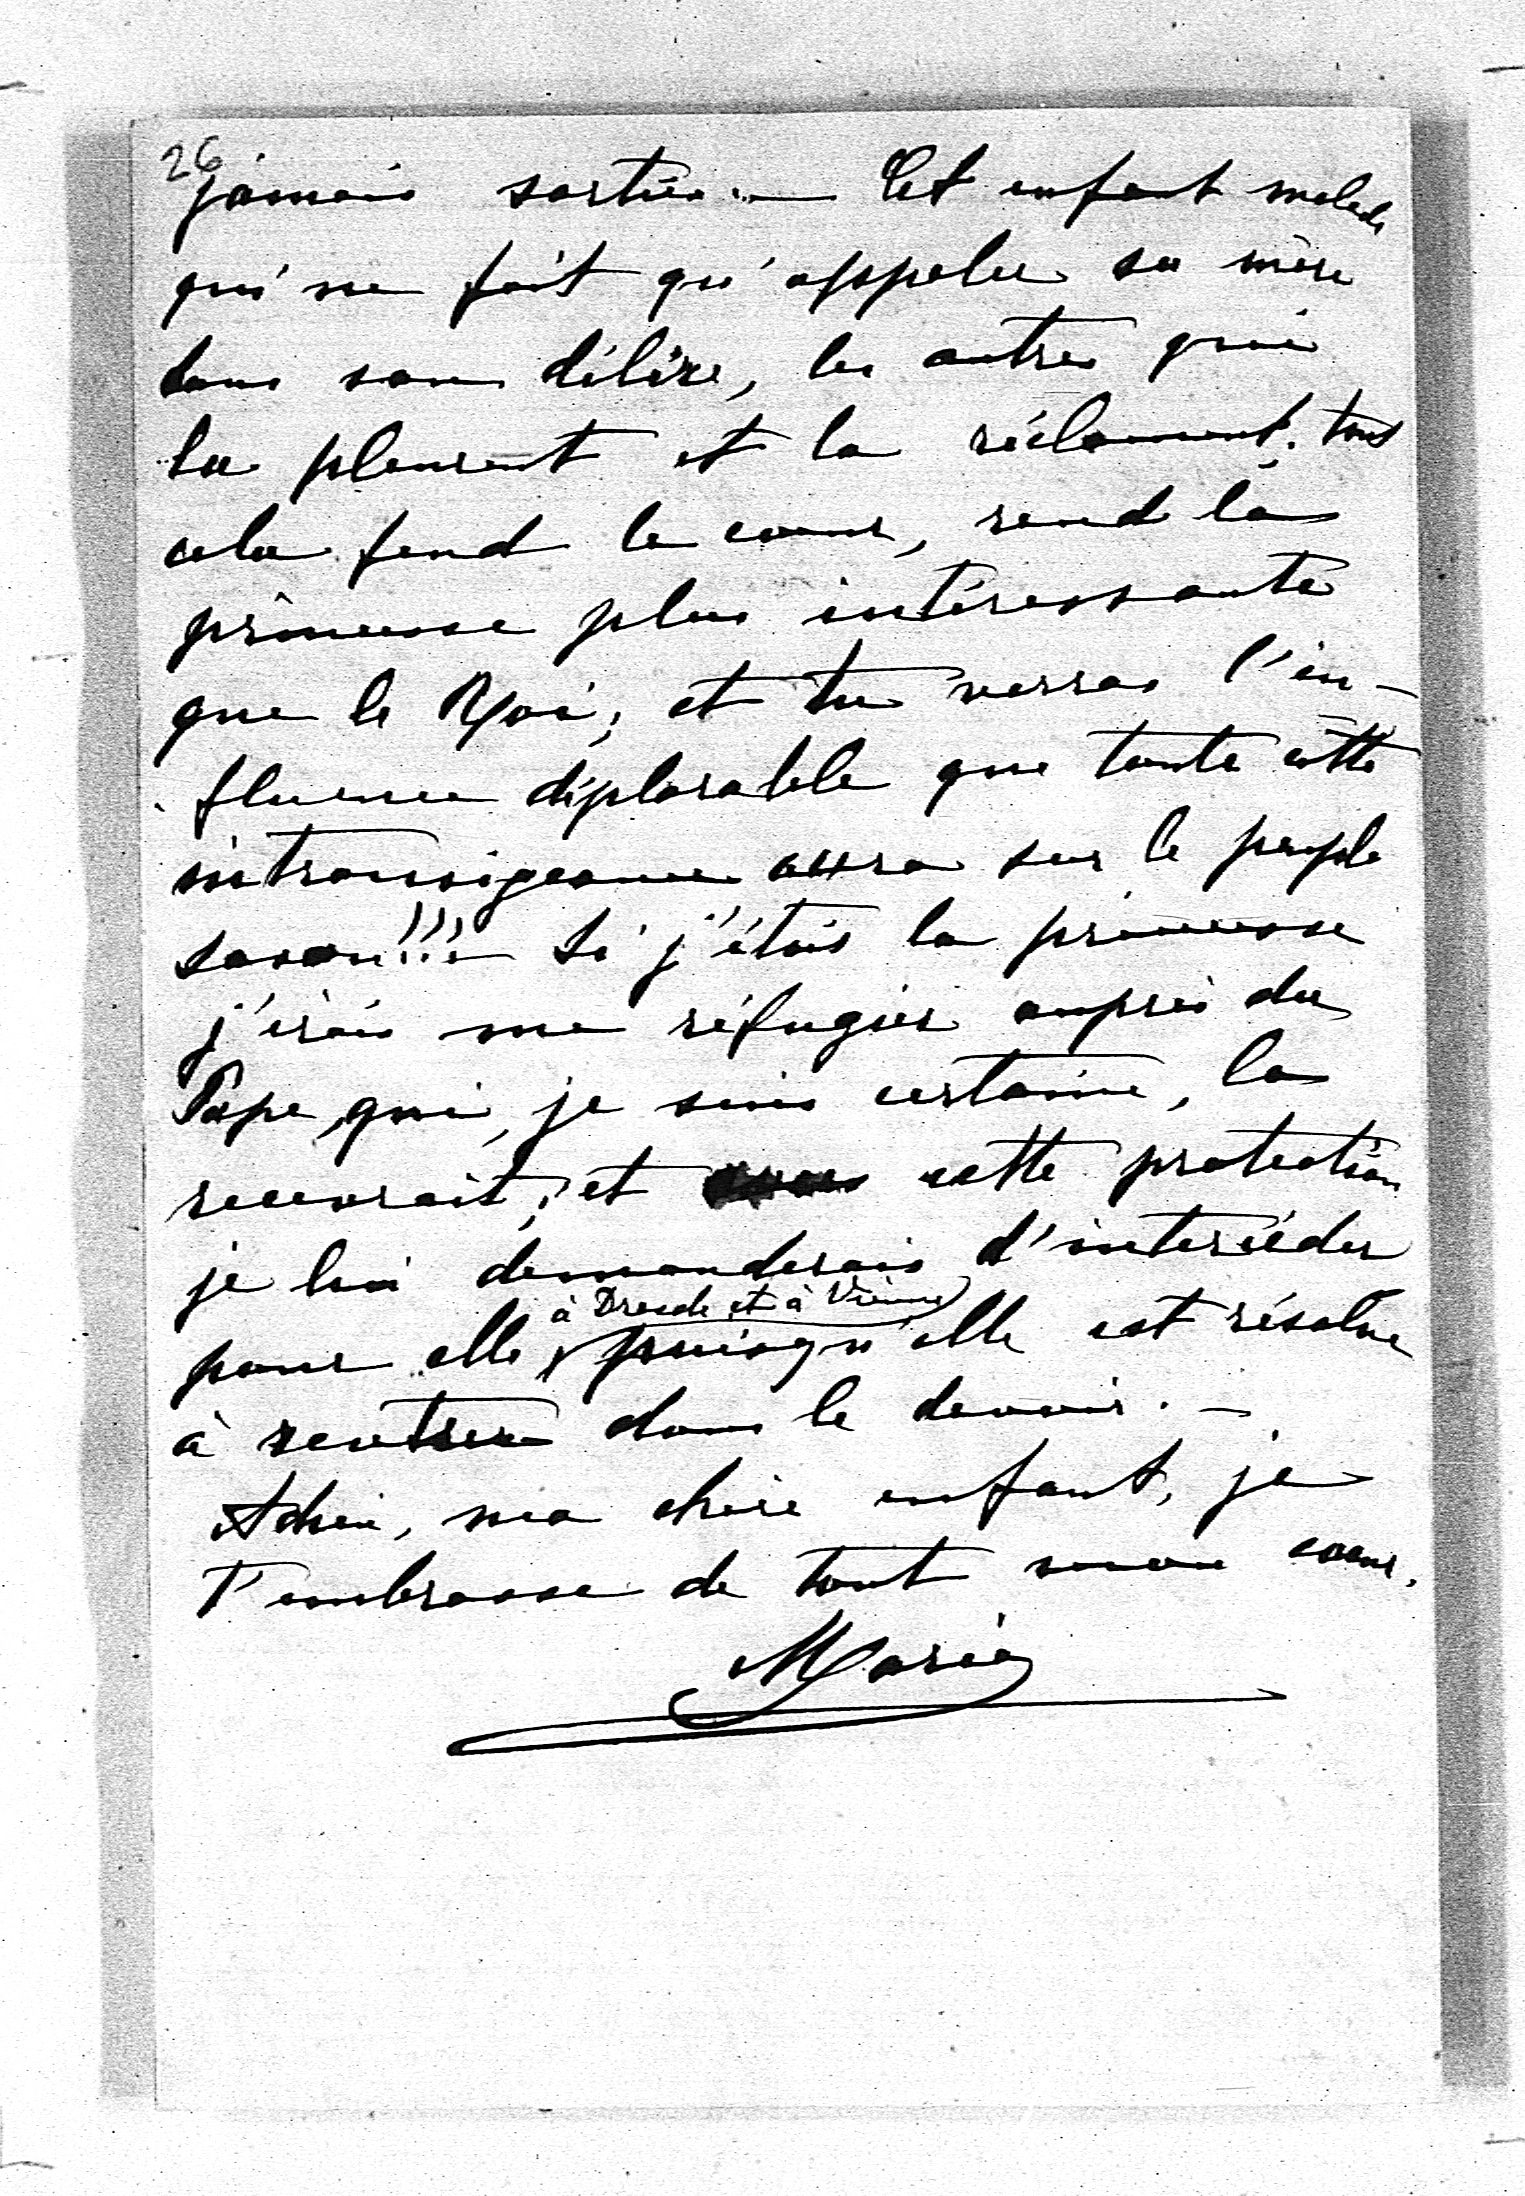 26
jamais sortie. — Cet enfant malade
qui ne fait qu'appeler sa mère
dans son délire, les autres qui
la pleurent et la réclament, tout
cela fend le cœur, rend la
princesse plus intéressante
que le Roi, et tu verras l'in-
fluence déplorable que toute cette
intransigeance aura sur le peuple
saxon!!! — Si j'étais la princesse
j'irais me réfugier auprès du
Pape, qui, je suis certaine, la
recevrait, et cette protection
je lui demanderais d'intercéder
à Dresde et à Vienne
pour elle, puisqu'elle est résolue
à rentrer dans le devoir. —
Adieu, ma chère enfant, je
t'embrasse de tout mon cœur.
Marie